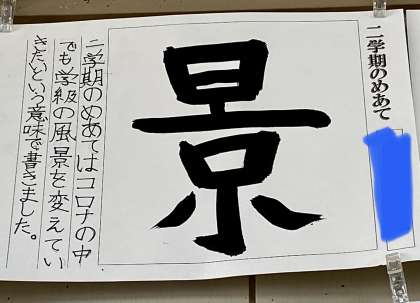 二学期のめあて
景
二学期のめあてはコロナの中
でも学級の風景を変えてい
きたいという意味で書きました。